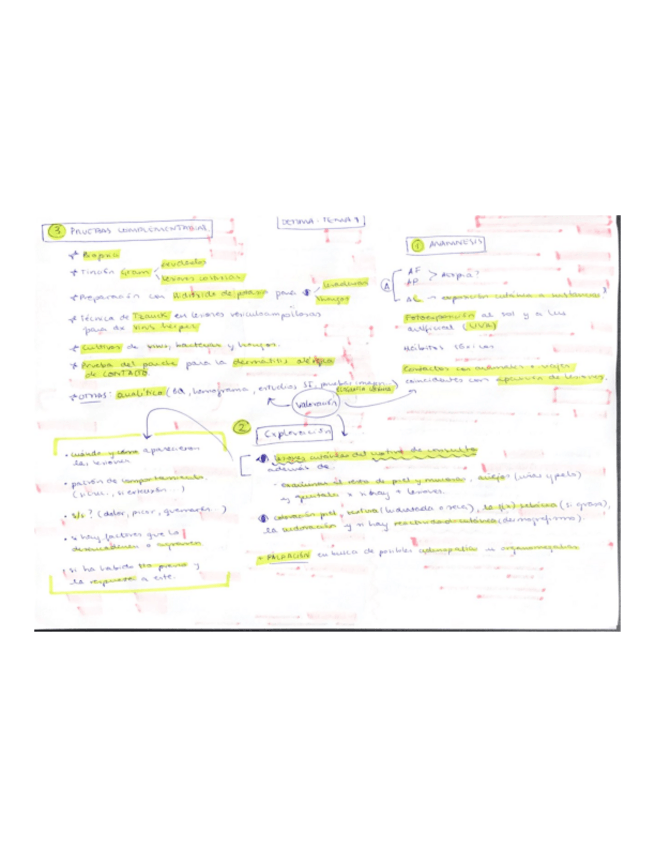 DERMA - TEMA 1
① ANAMNESIS
AF
AP > Atopia?
Fotoexposición al sol y a luz
artificial (UVA)
Hábitos tóxicos
Contactos con animales, viajes,
aparición de lesiones.
Valoración
② Exploración
Lesiones cutáneas del motivo de consulta
además de.
- examinar el resto de piel y mucosas, anejos (uñas y pelo)
y genitales x si hay + lesiones.
coloración piel, textura (hidratada o seca), la f(x) sebácea (si grasa),
la sudoración y si hay reactividad cutánea (dermografismo).
+ PALPACIÓN en busca de posibles adenopatías u organomegalias
③ PRUEBAS COMPLEMENTARIAS
* Biopsia
* Tinción Gram
exudados
lesiones costrosas
* Preparación con hidróxido de potasio para
levaduras
Hongos
* Técnica de Tzanck en lesiones vesiculoampollosas
para dx virus herpes
* Cultivos de virus, bacterias y hongos.
* Prueba del parche para la dermatitis alérgica
de CONTACTO.
* OTROS: analítica (BQ, hemograma, estudios SI, pruebas imagen...)
• cuándo y cómo aparecieron
las lesiones
• patrón de comportamiento
• St? (dolor, picor, quemazón...)
• si hay factores que lo
desencadenen o agraven
• si ha habido tto previo y
la respuesta a este.